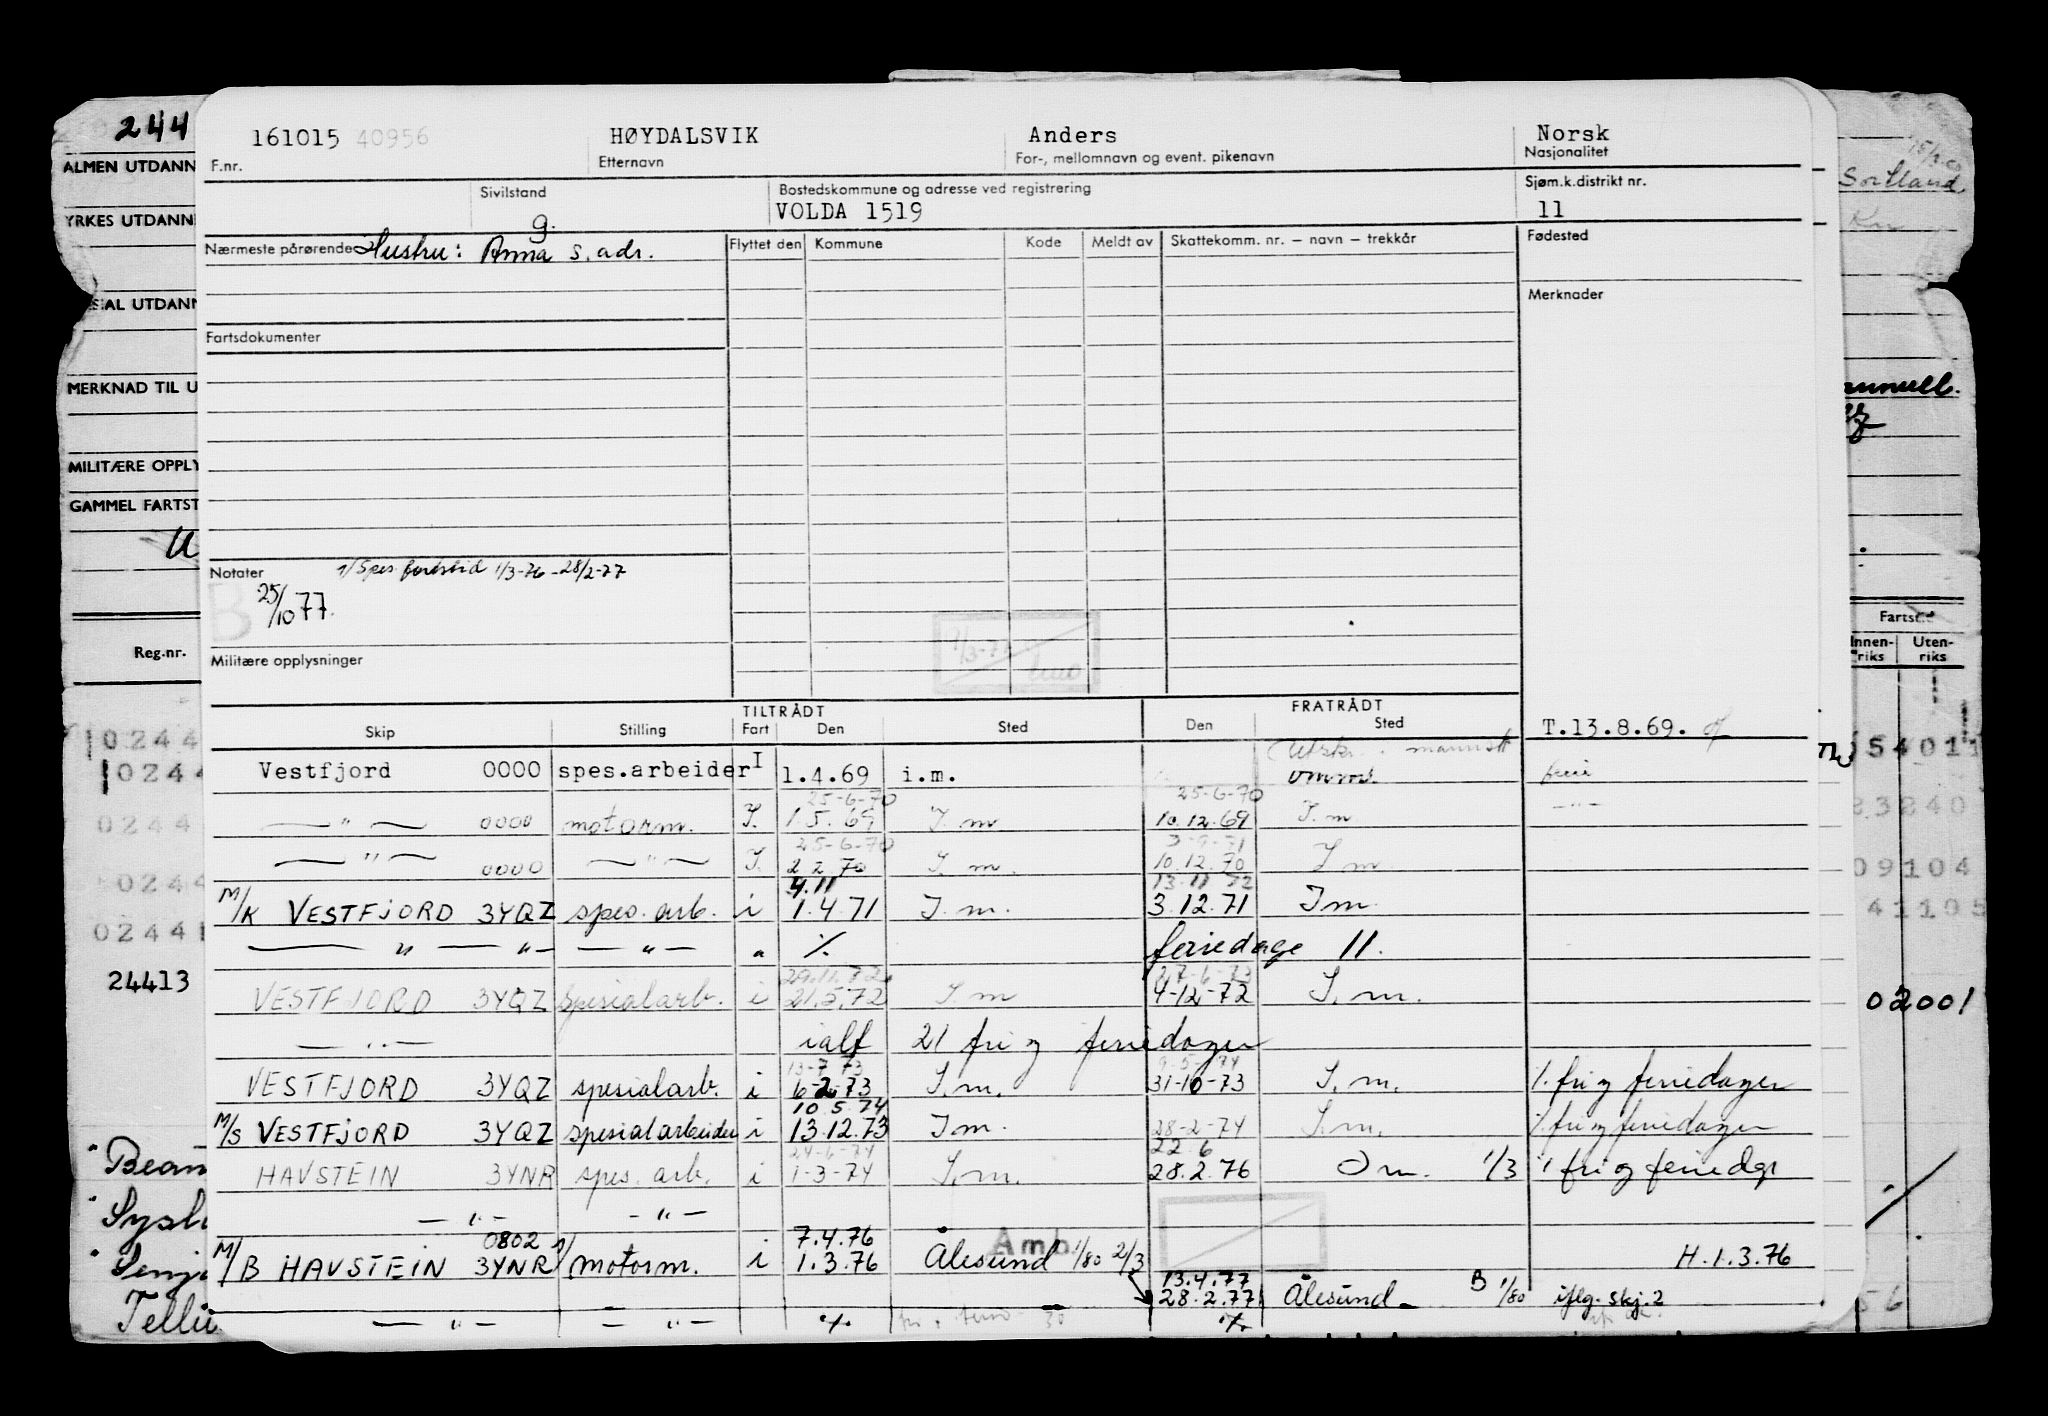 244
161015 40956 HØYDALSVIK Anders Norsk
F.nr. Etternavn For-, mellomnavn og event. pikenavn Nasjonalitet
Sivilstand Bostedskommune og adresse ved registrering Sjøm.k.distrikt nr.
g. VOLDA 1519 11
Nærmeste pårørende Hustru: Anna s. adr. Flyttet den Kommune Kode Meldt av Skattekomm. nr. – navn – trekkår Fødested
Merknader
Fartsdokumenter
Notater 1/3-76 - 28/2-77
B 25/10 77.
Militære opplysninger
TILTRÅDT FRATRÅDT
Skip Stilling Fart Den Sted Den Sted
T.13.8.69.
Vestfjord 0000 spes.arbeider I 1.4.69 i.m.
25-6-70 25-6-70
— " — 0000 motorm. I. 1.5.69 I.m 10.12.69 I.m — " —
25-6-70
— " — 0000 — " — I. 2.2.70 I m. 10.12.70 I m.
4.11 13.11 72
M/K VESTFJORD 3YQZ spes. arb. i 1.4.71 I.m. 3.12.71 I m.
— " — " — — " — " % feriedage 11.
29.11.72 27-6-73
VESTFJORD 3YQZ spesialarb. i 21.5.72 I.m 4-12-72 I.m.
— " — ialf 21 fri og feriedager
13-7 73 9.5-74
VESTFJORD 3YQZ spesialarb. i 6-2-73 I.m. 31-10-73 I.m. 1. fri og feriedager
10.5.74
M/S VESTFJORD 3YQZ spesialarbeider i 13.12.73 I m. 28-2-74 I.m. % fri og feriedager
24-6-74 22.6
HAVSTEIN 3YNR spes. arb. i 1-3-74 I.m. 28.2.76 I m. 1/3 % fri og feriedgr
— " — — " —
0802 7.4.76
M/B HAVSTEIN 3YNR 1/ motorm. i 1.3.76 Ålesund 1/80 2/3 H.1.3.76
13.4.77
28.2.77 Ålesund B 1/80 iflg. skj. 2
— " — — " — % 30 %
ALMEN UTDANN
YRKES UTDANN
SIAL UTDANN
MERKNAD TIL U
MILITÆRE OPPLY
GAMMEL FARTST
Reg.nr.
0244
0244
0244
0244
0244
24413
Tellu
Sortland
Fartst
Innen-riks Uten-riks
54011
83840
09104
41105
02001
56